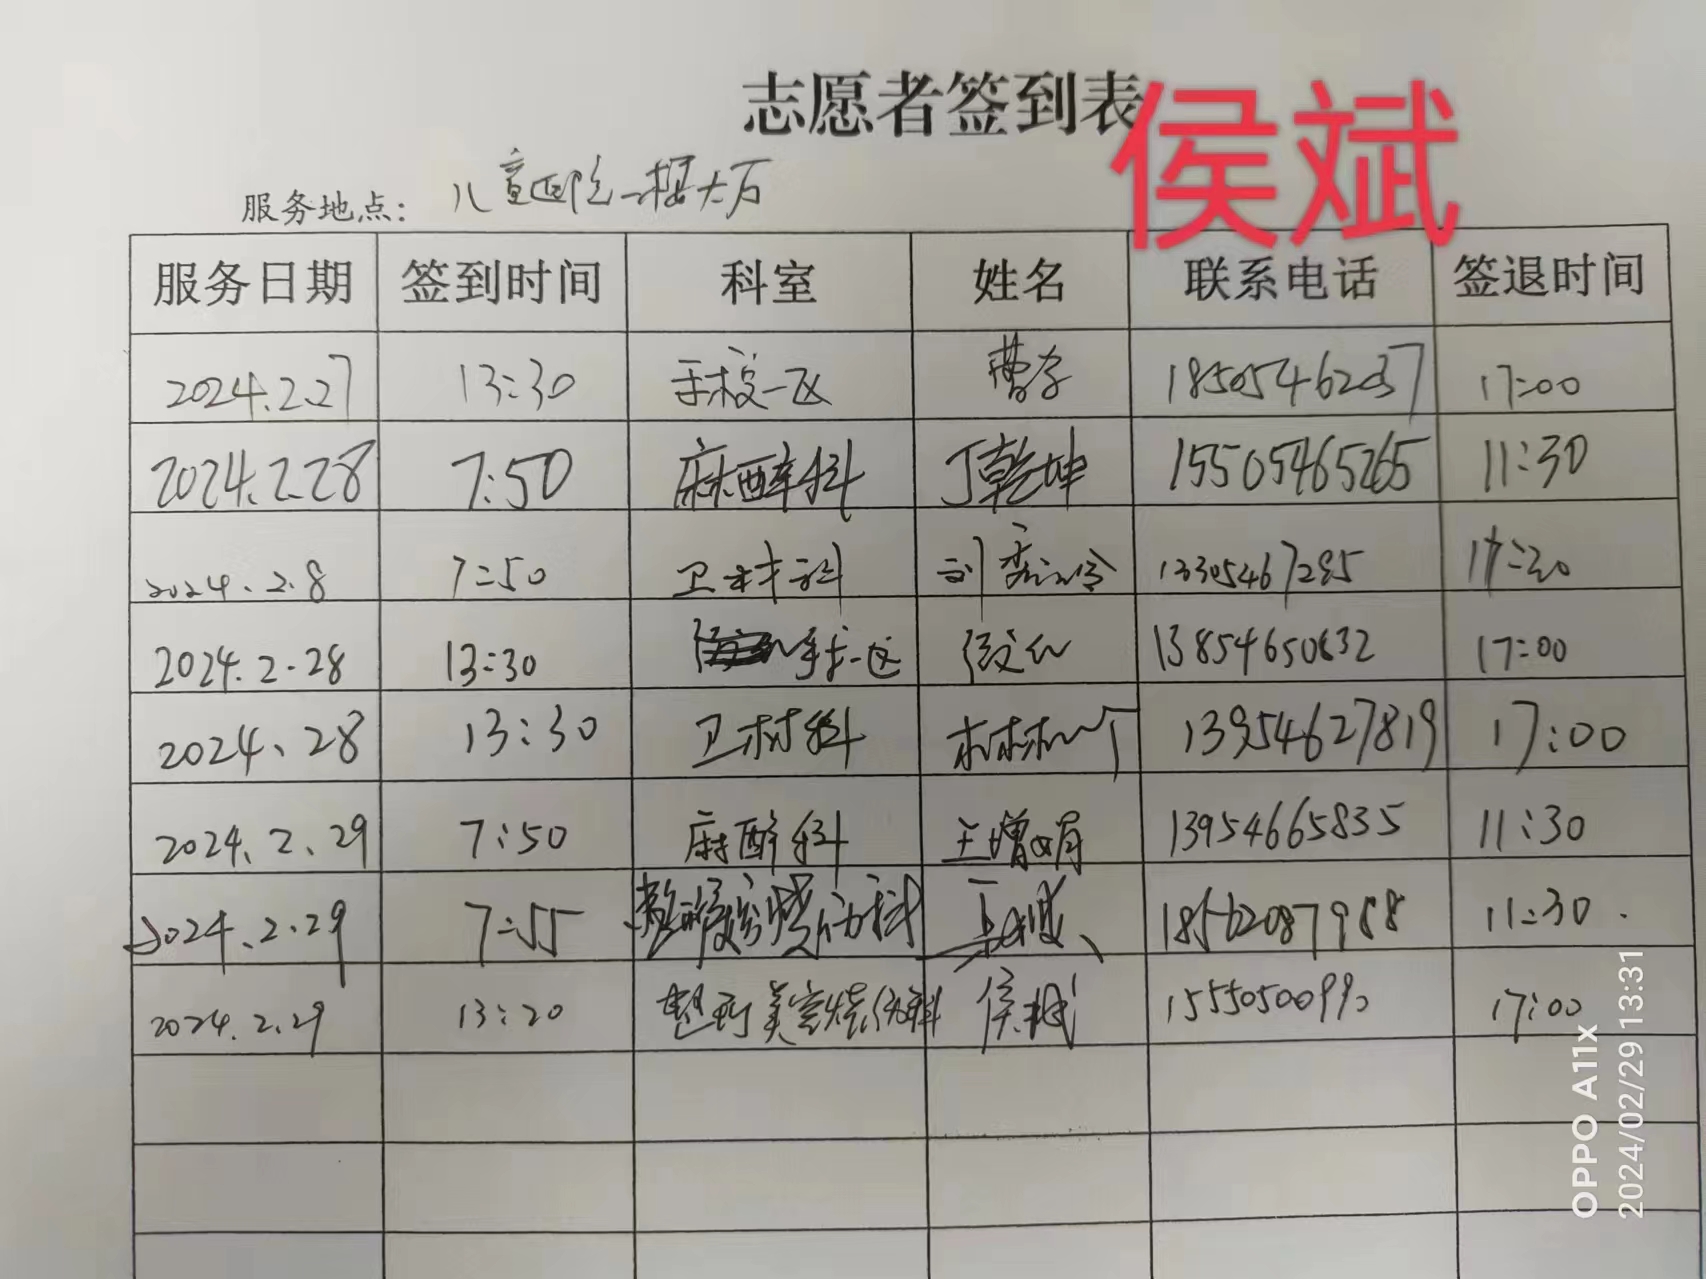 志愿者签到表
侯斌
服务地点： 儿童医院一楼大厅
服务日期 签到时间 科室 姓名 联系电话 签退时间
2024.2.27 13:30 手术一区 曹 18505462037 17:00
2024.2.28 7:50 麻醉科 丁乾坤 15505465265 11:30
2024.2.8 7:50 卫材科 刘 13305467285
2024.2.28 13:30 手术一区 13854650832 17:00
2024、28 13:30 卫材科 13954627819 17:00
2024.2.29 7:50 麻醉科 王增娟 13954665835 11:30
2024.2.29 7:55 18562087988 11:30
2024.2.29 13:20 整形美容烧伤科 侯斌 15550500990 17:00
OPPO A11x
2024/02/29 13:31